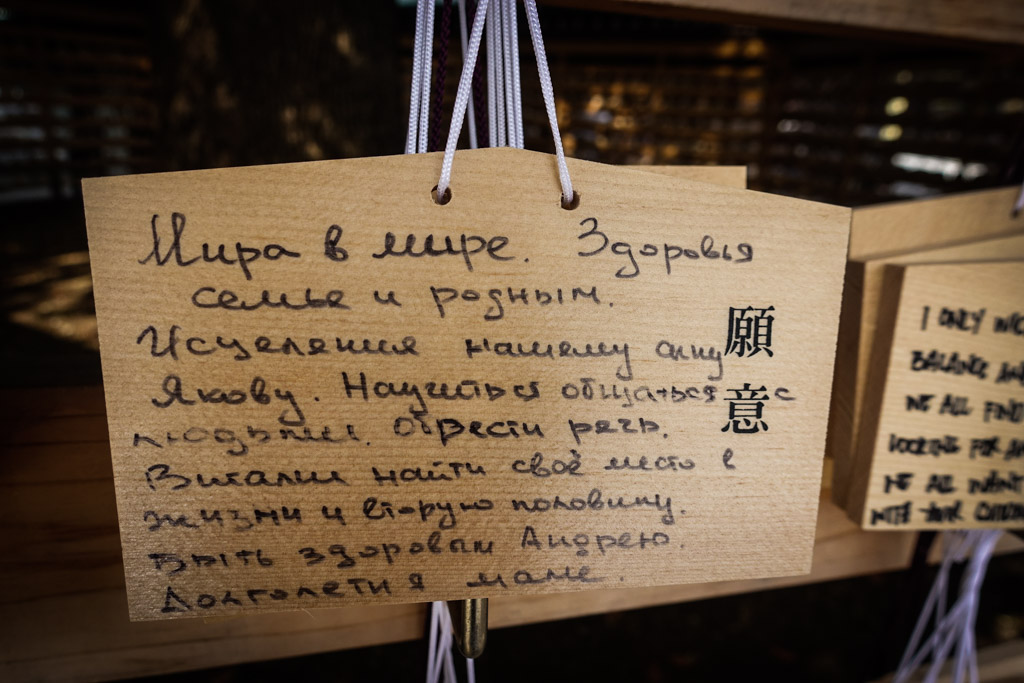 Мира в мире. Здоровья
семье и родным.
Исцеления нашему сыну
Якову. Научиться общаться с
людьми. Обрести речь.
Виталию найти своё место в
жизни и вторую половину.
Быть здоровым Андрею.
Долголетия маме.
願
意
I ONLY
BALANCE AND
WE ALL FIND
LOOKING FOR
WE ALL WANT
WITH YOUR